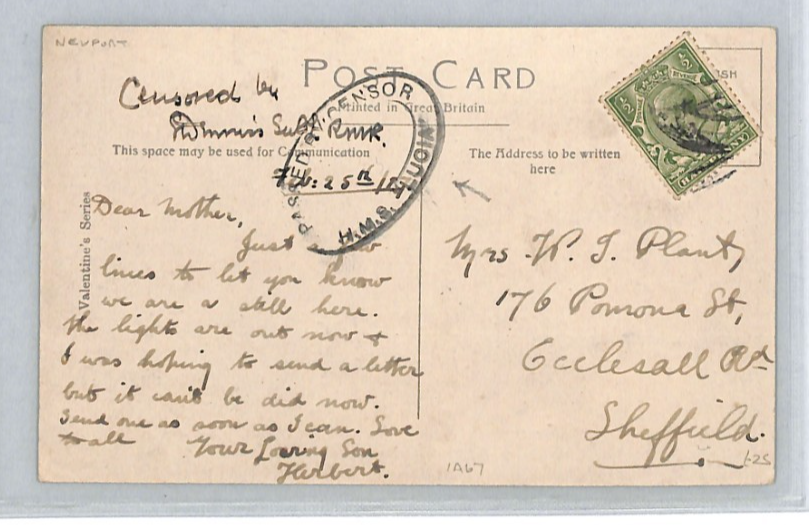 NEWPORT
POST CARD
Printed in Great Britain
Censored by
Sub Lt. RNR.
This space may be used for Communication
The Address to be written
here
Feb: 25th
PASSED CENSOR
H.M.S.
Valentine's Series
Dear Mother,
Just a few
lines to let you know
we are a still here.
The lights are out now &
I was hoping to send a letter
but it can't be did now.
Send one as soon as I can. Love
to all Your Loving Son
Herbert.
Mrs W. J. Plant,
176 Pomona St,
Ecclesall Rd
Sheffield.
1A67